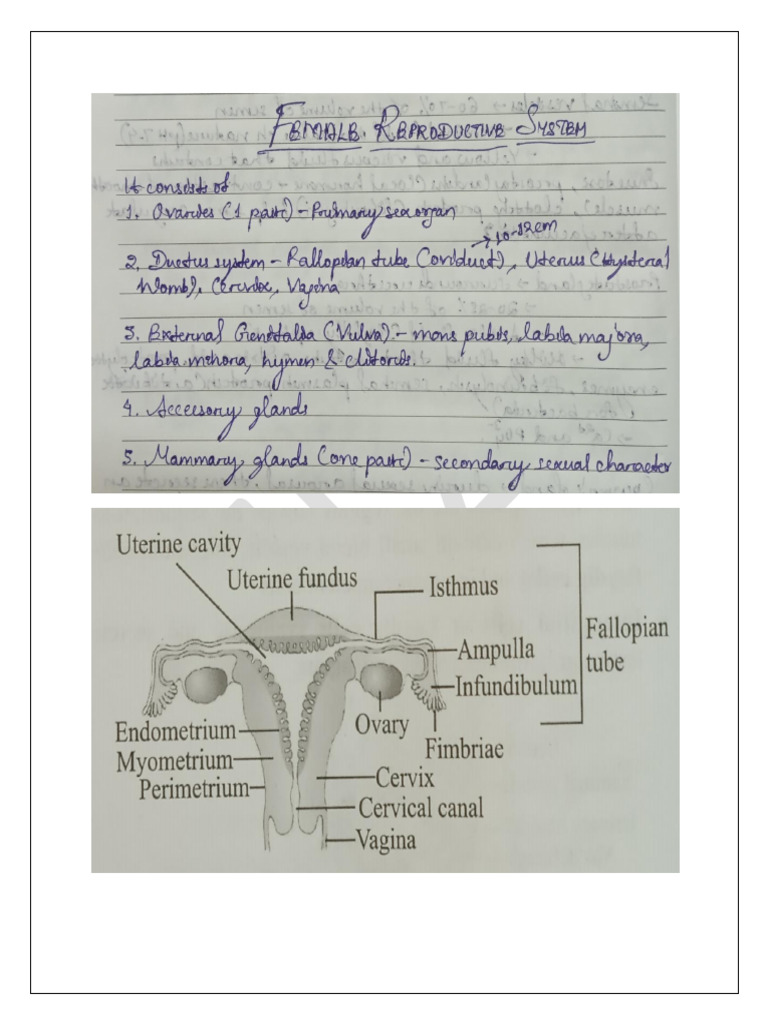 FEMALE REPRODUCTIVE SYSTEM
It consists of
1. Ovaries (1 pair) - Primary sex organ
→ 10-12cm
2. Ductus system - Fallopian tube (oviduct), Uterus (Hysteria/
Womb), Cervix, Vagina
3. External Genitalia (Vulva) - mons pubis, labia majora,
labia minora, hymen & clitoris.
4. Accessory glands
5. Mammary glands (one pair) - secondary sexual character
Uterine cavity
Uterine fundus
Isthmus
Fallopian
tube
Ampulla
Infundibulum
Ovary
Fimbriae
Endometrium
Myometrium
Perimetrium
Cervix
Cervical canal
Vagina